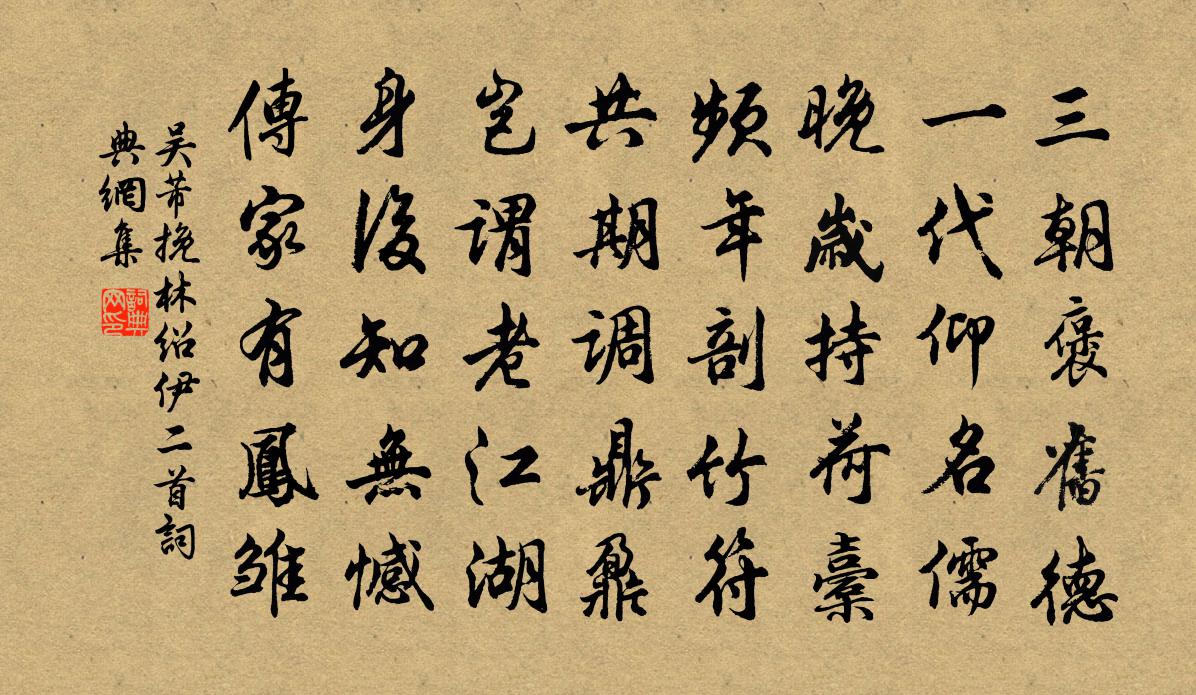 三朝褒舊德
一代仰名儒
晚歲持荷橐
頻年剖竹符
共期调鼎鼐
岂謂老江湖
身後知無憾
傳家有鳳雏
吴芾挽林绍伊二首詞
典網集
詞典网印